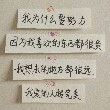 我为什么要努力
因为我喜欢的东西都很贵
我想去的地方都很远
我爱的人超完美